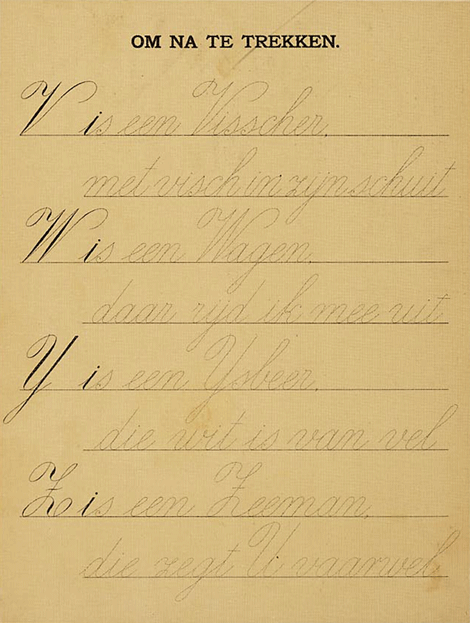 OM NA TE TREKKEN.
V is een Visscher,
met visch in zijn schuit
W is een Wagen,
daar rijd ik mee uit
Y is een Ysbeer,
die wit is van vel
Z is een Zeeman,
die zegt U vaarwel